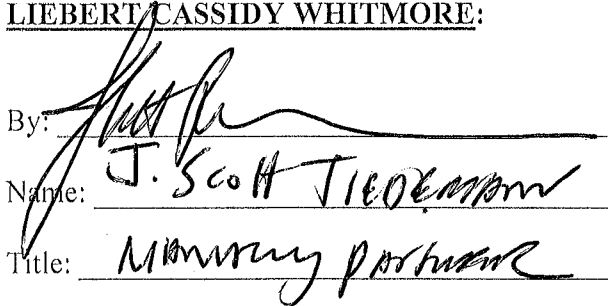 LIEBERT CASSIDY WHITMORE:
By:
Name: J. Scott TIEDEMANN
Title: MANAGING PARTNER